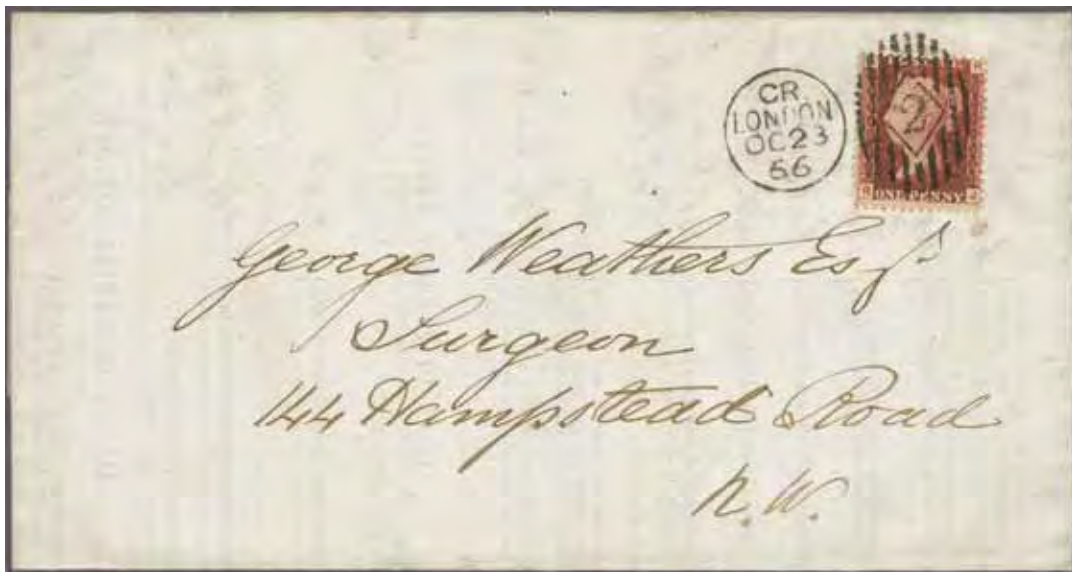 CR
LONDON
OC 23
66
2
ONE PENNY
George Weathers Esqr
Surgeon
144 Hampstead Road
N.W.